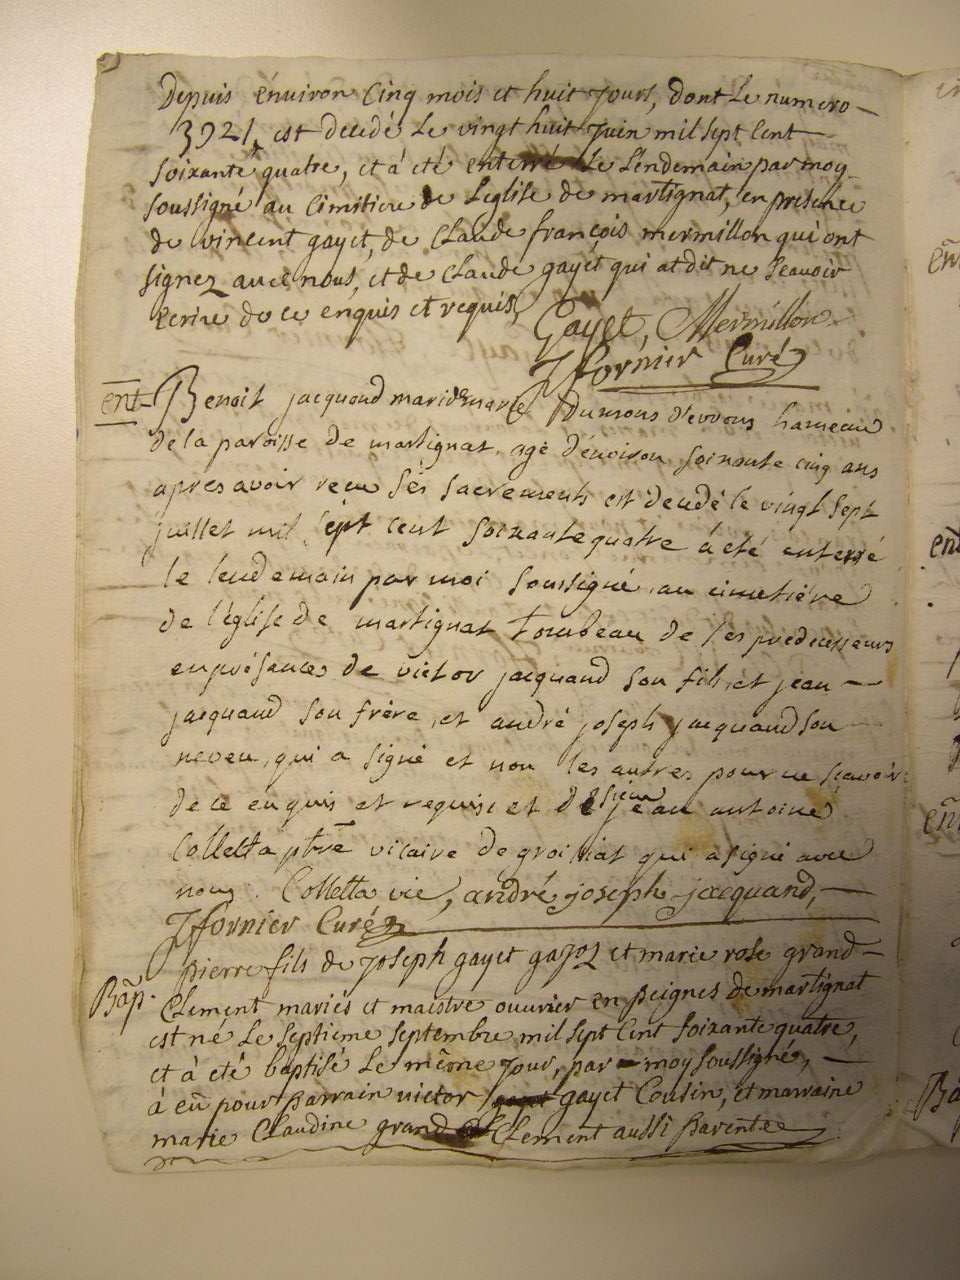 Depuis énviron Cinq mois et huit Jours, dont Le numero
3921, est decedé Le vingt huit Juin mil sept Cent
soixante quatre, et à eté enterré Le Lendemain par moy
soussigné au Cimitiere de Leglise de martignat, en presence
de vincent gayet, de Claude françois mermillon qui ont
signez avec nous, et de Claude gayet qui at dit ne Scavoir
Ecrire de ce enquis et requis,
Gayet, Mermillon
Jfornier Curé
ent. Benoit jacquand marié à marie Dumons d'evvons hameau
de la paroisse de martignat, agé d'énviron soixante cinq ans
apres avoir recu ses sacrements est décudé le vingt sept
juillet mil sépt cent soixante quatre à eté enterré
le lendemain par moi soussigné, au cimetière
de l'église de martignat tombeau de ses prédecesseurs
en présances de victor jacquand son fils, et jean
jacquand son frère, et andré joseph jacquand son
neveu, qui a signé et non les autres pour ne sçavoir
de ce enquis et requis, et de sieur jean antoine
Colletta ptre vicaire de groissiat qui a signé avec
nous. Colletta vic, andré joseph jacquand,
Jfornier Curé
Bap. pierre fils de Joseph gayet gajoz et marie rose grand
Clement mariés et maistre ouvrier en peignes de martignat
est né Le septieme septembre mil sept Cent soixante quatre,
et à été baptisé Le même Jour, par moy soussigné,
à eu pour parrain victor gayet Cousin, et marraine
marie Claudine grand Clement aussi parente